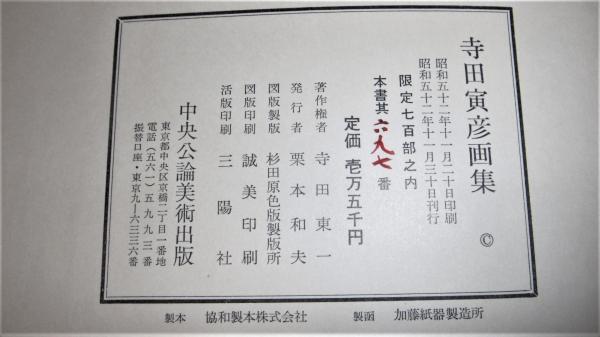 寺田寅彦画集 ©
昭和五十二年十一月二十日印刷
昭和五十二年十一月三十日刊行
限定七百部之内
本書其六九七番
定価 壱万五千円
著作権者 寺田東一
発行者 栗本和夫
図版製版 杉田原色版製版所
図版印刷 誠美印刷
活版印刷 三陽社
中央公論美術出版
東京都中央区京橋二丁目一番地
電話(五六一)五九九三番
振替口座・東京九―六三三六番
製本 協和製本株式会社 製函 加藤紙器製造所